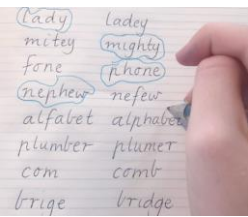 lady ladey
mitey mighty
fone phone
nephew nefew
alfabet alphabet
plumber plumer
com comb
brige bridge